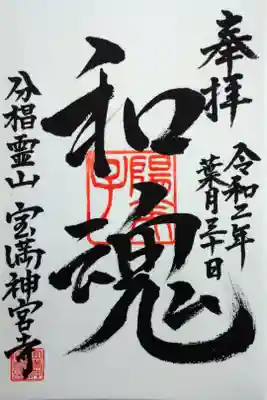 奉拝
令和二年
葉月三十日
和魂
分椙霊山 宝満神宮寺